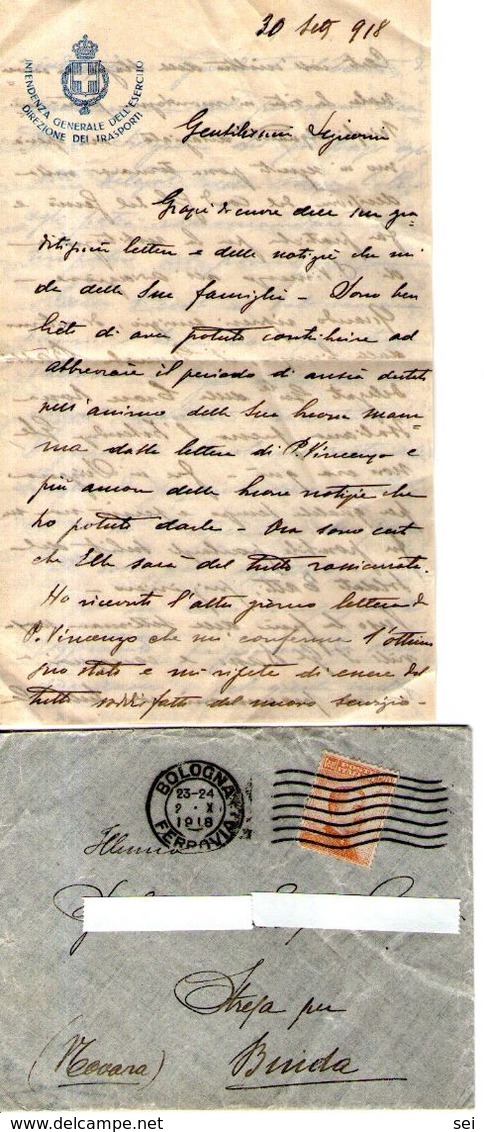 30 Sett 918
INTENDENZA GENERALE DELL'ESERCITO
DIREZIONE DEI TRASPORTI
Gentilissima Signorina
Grazie di cuore della sua gra-
ditissima lettera e delle notizie che mi
da della Sua famiglia - Sono ben
lieto di aver potuto contribuire ad
abbreviare il periodo di ansia destata
nell'animo della Sua buona mam-
ma dalle lettere di P. Vincenzo e
più ancora delle buone notizie che
ho potuto darle - Ora sono certo
che Ella sarà del tutto rassicurata.
Ho ricevuto l'altro giorno lettera di
P. Vincenzo che mi conferma l'ottimo
suo stato e mi ripete di essere del
tutto soddisfatto del nuovo servizio -
BOLOGNA
23-24
2 · X
1918
FERROVIA
POSTE
Stresa per
(Novara) Binda
sei